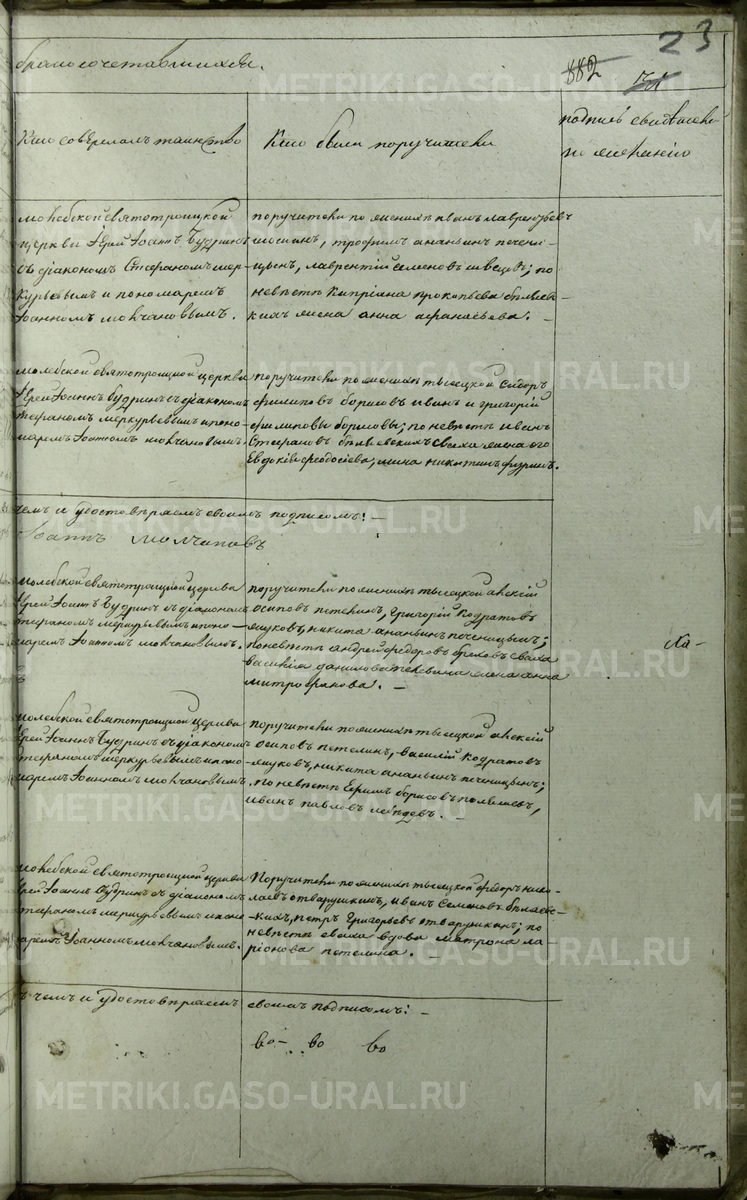 23
бракосочетавшихся.
882
Кто совершалъ таинство
Кто были поручители
подпись свидѣтелей
по желанію
молебской святотроицкой
церкви Iерей Iоаннъ Будринъ
съ дiакономъ Стефаномъ мер-
курьевымъ и пономаремъ
Iоанномъ молчановымъ.
поручители по женихѣ иванъ лаврентьевъ
трофимъ ананьинъ печени-
цынъ, лаврентiй семеновъ швецовъ; по
невѣстѣ Кипрiяна прокопьева бѣляев-
скихъ жена анна афанасьева. —
молебской святотроицкой церкви
Iерей Iоаннъ Будринъ съ дiакономъ
стефаномъ меркурьевымъ и поно-
маремъ Iоанномъ молчановымъ.
поручители по женихѣ тысецкой Сидоръ
филиповъ борисовъ иванъ и григорiй
филиповы борисовы; по невѣстѣ иванъ
Стефановъ бѣляевскихъ сваха жена его
Евдокiя феодосiева, никитинъ
чемъ и удостовѣряемъ своимъ подписомъ: —
Iоаннъ молчановъ
молебской святотроицкой церкви
Iерей Iоаннъ Будринъ съ дiакономъ
стефаномъ меркурьевымъ и поно-
маремъ Iоанномъ молчановымъ.
поручители по женихѣ тысецкой алексiй
осиповъ петелинъ, григорiй Кодратовъ
никита ананьинъ печеницынъ;
по невѣстѣ андрей федоровъ сваха
василья данилова жена анна
митрофанова. —
молебской святотроицкой церкви
Iерей Iоаннъ Будринъ съ дiакономъ
стефаномъ меркурьевымъ и поно-
маремъ Iоанномъ молчановымъ.
поручители по женихѣ тысецкой алексiй
осиповъ петелинъ, василiй Кодратовъ
никита ананьинъ печеницынъ;
по невѣстѣ Ефимъ борисовъ
иванъ павловъ —
молебской святотроицкой церкви
Iерей Iоаннъ Будринъ съ дiакономъ
стефаномъ меркурьевымъ и поно-
маремъ Iоанномъ молчановымъ.
Поручители по женихѣ тысецкой федоръ нико-
лаевъ отварушкинъ, иванъ Семеновъ бѣляев-
скихъ, петръ григорьевъ отварушкинъ; по
невѣстѣ сваха вдова матрона ла-
рiонова петелина. —
въ чемъ и удостовѣряемъ своимъ подписомъ: —
во — во во
METRIKI.GASO-URAL.RU
METRIKI.GASO-URAL.RU
METRIKI.GASO-URAL.RU
METRIKI.GASO-URAL.RU
METRIKI.GASO-URAL.RU
METRIKI.GASO-URAL.RU
METRIKI.GASO-URAL.RU
METRIKI.GASO-URAL.RU